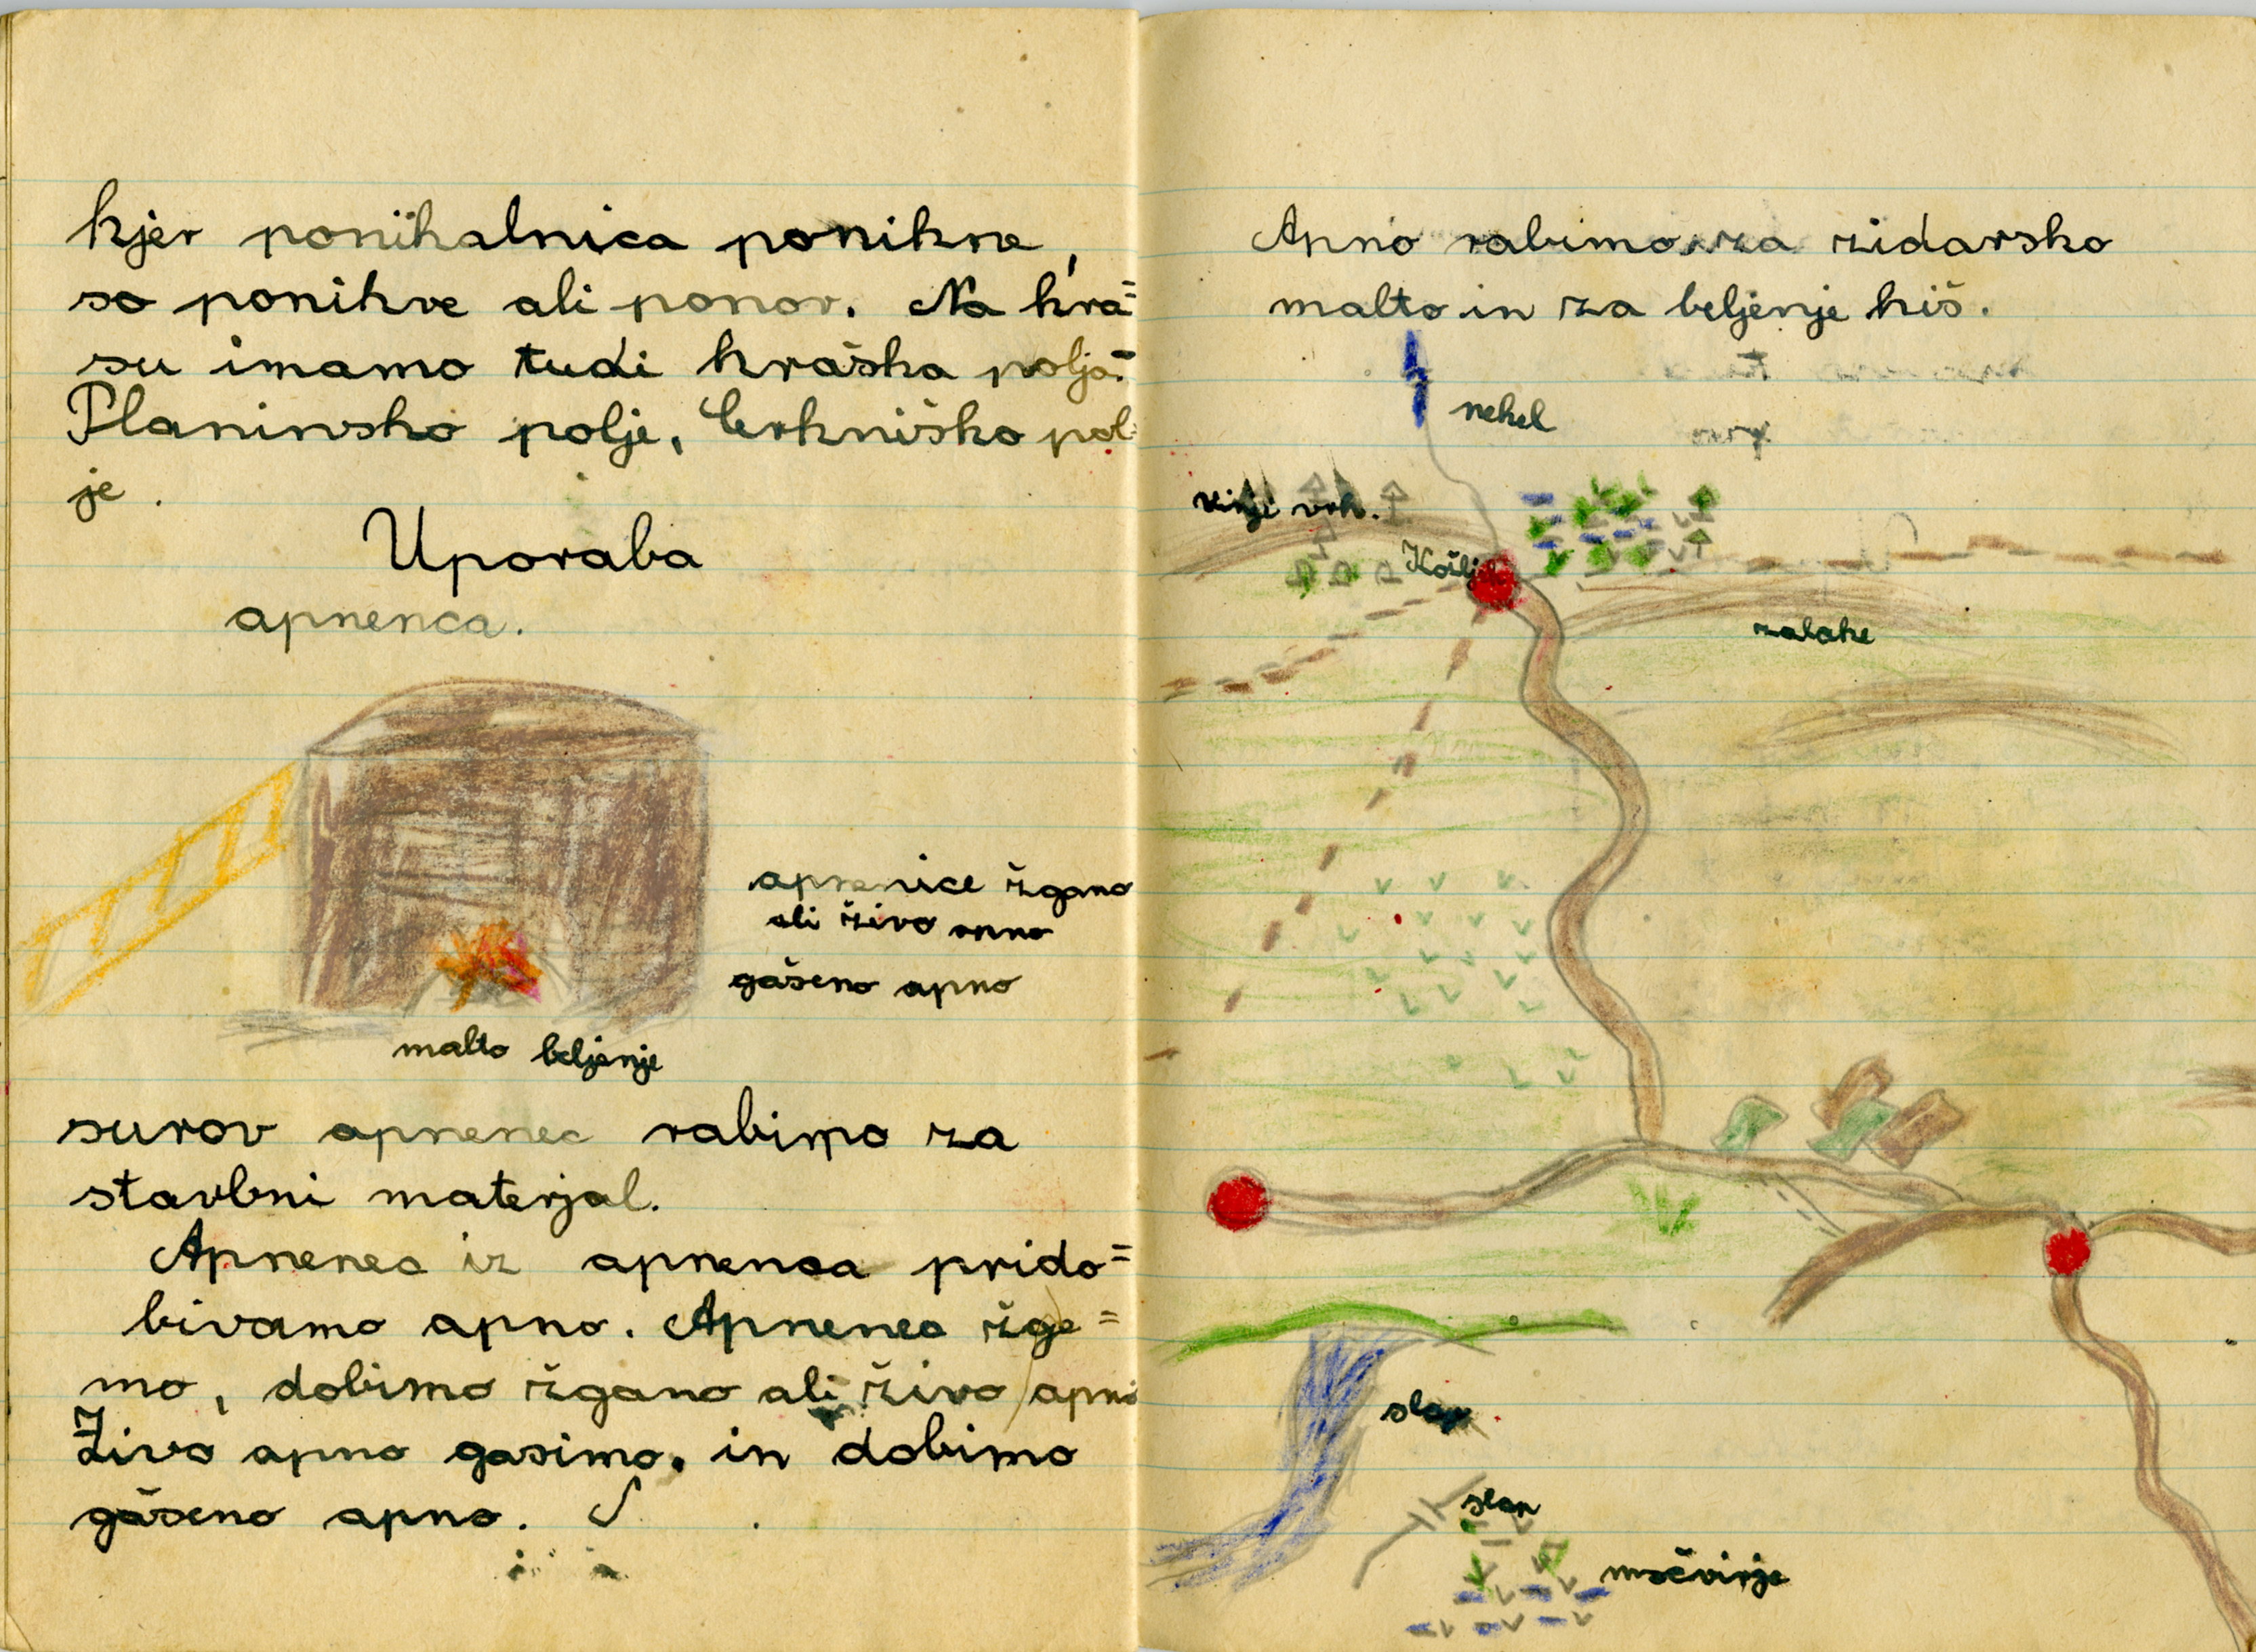 kjer ponikalnica ponikne,
so ponikve ali ponor. Na kra=
su imamo tudi kraška polja=
Planinsko polje, Cerkniško pol
je.
Uporaba
apnenca.
apnenice žgano
ali živo apno
gašeno apno
malto beljenje
surov apnenec rabimo za
stavbni materjal.
Apnenec iz apnenca prido=
bivamo apno. Apnenec žge=
mo, dobimo žgano ali živo apno
Živo apno gasimo. in dobimo
gašeno apno.
Apno rabimo za zidarsko
malto in za beljenje hiš.
nekel
vrh.
Košlj
zaloke
slap
slap
močvirje